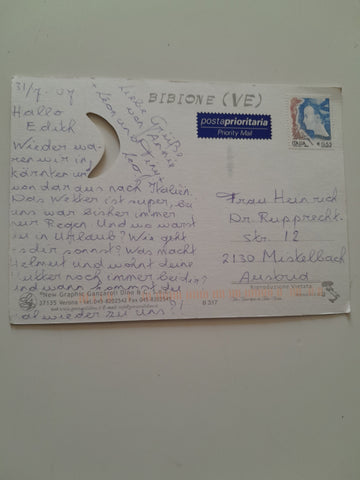 31/7.07
Hallo
Edith
Wieder wa-
ren wir in
Kärnten und
von dar aus nach Italien.
Das Wetter ist super, bei
uns war bisher immer
nur Regen. Und wo warst
du in Urlaub? Wie geht
es dir sonst? Was macht
Helmut und wohnt deine
Mutter noch immer bei dir?
Und wann kommst du
mal wieder zu uns?
Liebe Grüße
von Annie
Leon und
BIBIONE (VE)
postaprioritaria
Priority Mail
ITALIA
Frau Heinrich
Dr. Rupprecht-
str. 12
2130 Mistelbach
Austria
"New Graphic Gancaroli Dino & C. S.n.c.
37135 Verona - tel. 045-8202542 Fax 045-8202543
B 317
Riproduzione Vietata